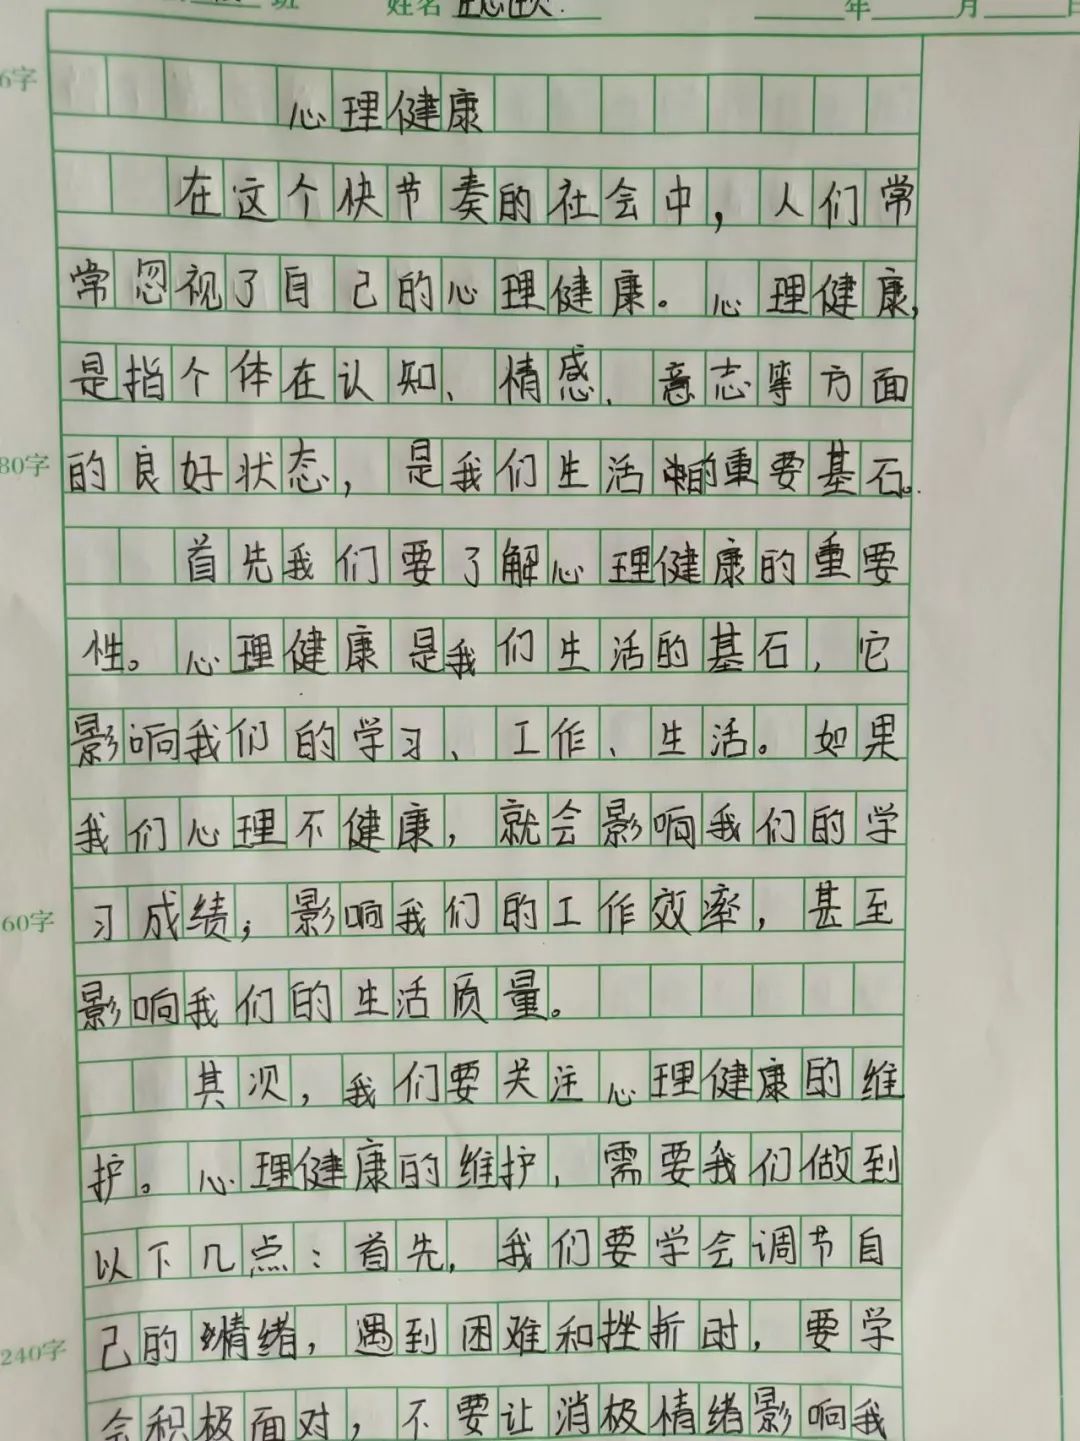 班 姓名 年 月 日
6字
心理健康
在这个快节奏的社会中，人们常
常忽视了自己的心理健康。心理健康，
是指个体在认知、情感、意志等方面
80字
的良好状态，是我们生活中的重要基石。
首先我们要了解心理健康的重要
性。心理健康是我们生活的基石，它
影响我们的学习、工作、生活。如果
我们心理不健康，就会影响我们的学
60字
习成绩；影响我们的工作效率，甚至
影响我们的生活质量。
其次，我们要关注心理健康的维
护。心理健康的维护，需要我们做到
以下几点：首先，我们要学会调节自
240字
己的情绪，遇到困难和挫折时，要学
会积极面对，不要让消极情绪影响我